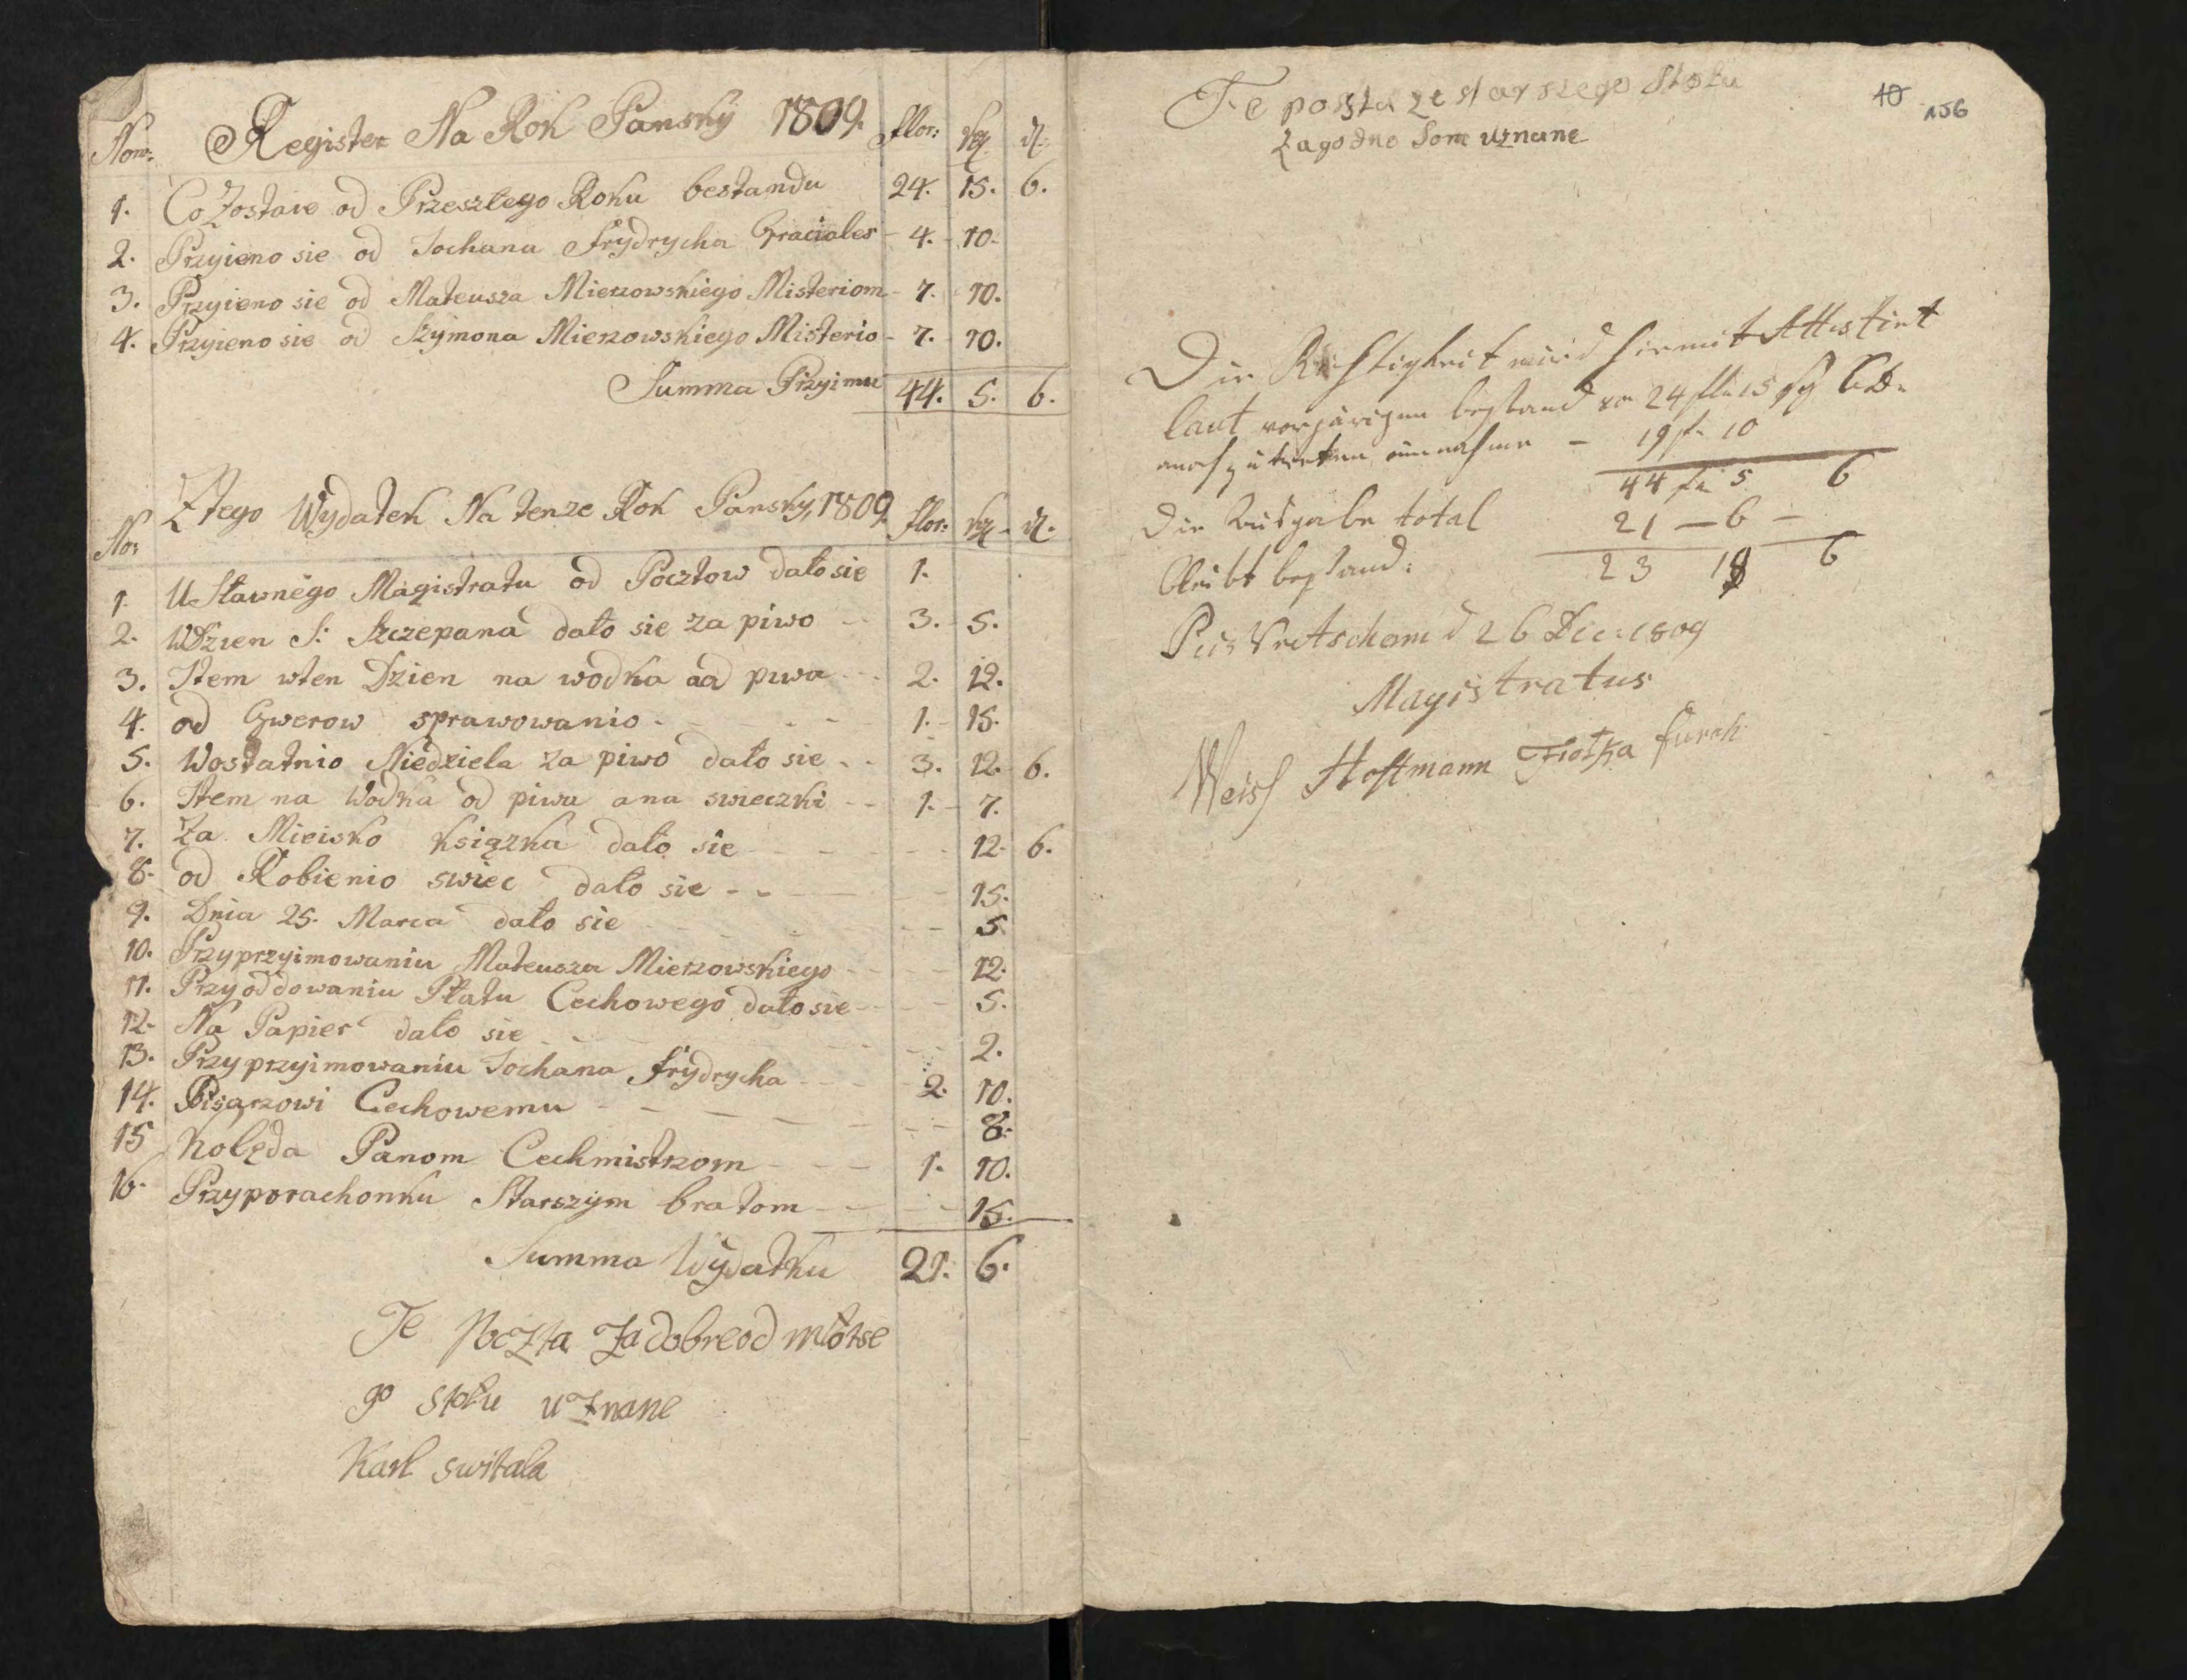 Nom: Register Na Rok Pansky 1809. flor: sgl. d.
1. Co Zostaie od Przeszlego Roku bestandu 24. 15. 6.
2. Przyieno sie od Jochana Frydrycha Graciales - 4. - 10.
3. Przyieno sie od Mateusza Mierzowskiego Misteriom - 7. - 10.
4. Przyieno sie od Szymona Mierzowskiego Misterio - 7. - 10.
Summa Przyimu 44. 5. 6.
No: Z tego Wydatek Na tenze Rok Pansky, 1809. flor: sgl - d.
1. U Sławnego Magistratu od Pocztow dało sie 1.
2. W Dzien S: Szczepana dało sie za piwo -- 3. - 5.
3. Item wten Dzien na wodka od piwa - - 2. 12.
4. od Gwerow sprawowanio - - - - - 1. - 15.
5. Wostatnio Niedziela za piwo dało sie - - 3. 12. 6.
6. Item na Wodka od piwa ana swieczki - - 1. - 7.
7. Za Mieisko Książka dało sie - - - - - 12. 6.
8. od Robienio swiec dało sie - - - - 15.
9. Dnia 25. Marca dało sie - - - - - 5.
10. Przyprzyimowaniu Mateusza Mierzowskiego - - - - 12.
11. Przy oddowaniu Płatu Cechowego dało sie - - - 5.
12. Na Papier dało sie - - - - - 2.
13. Przyprzyimowaniu Jochana Frydrycha - - - 2. 10.
14. Pisarzowi Cechowemu - - - - - - 8.
15 Kolęda Panom Cechmistrzom - - - 1. 10.
16. Przyporachonku Starszym bratom - - - - 15.
Summa Wydatku 21. 6.
Te Poczta Za dobre od młotse
go stołu uznane
Karl switala
10 156
Te poszta ze starszego Stołu
zagodne some uznane
Die Richtigkeit wird hiermit Attestirt
laut vorjärigen bestand von 24 fl: 15 sg 6 D.
noch zu tretten einnahme - 19 f. 10
44 f: 5 6
Die Ausgabe total 21 — 6 —
bleibt bestand: 23 18 6
d 26 Dec: 1809
Magistratus
Weiss Hoffmann Fiotka